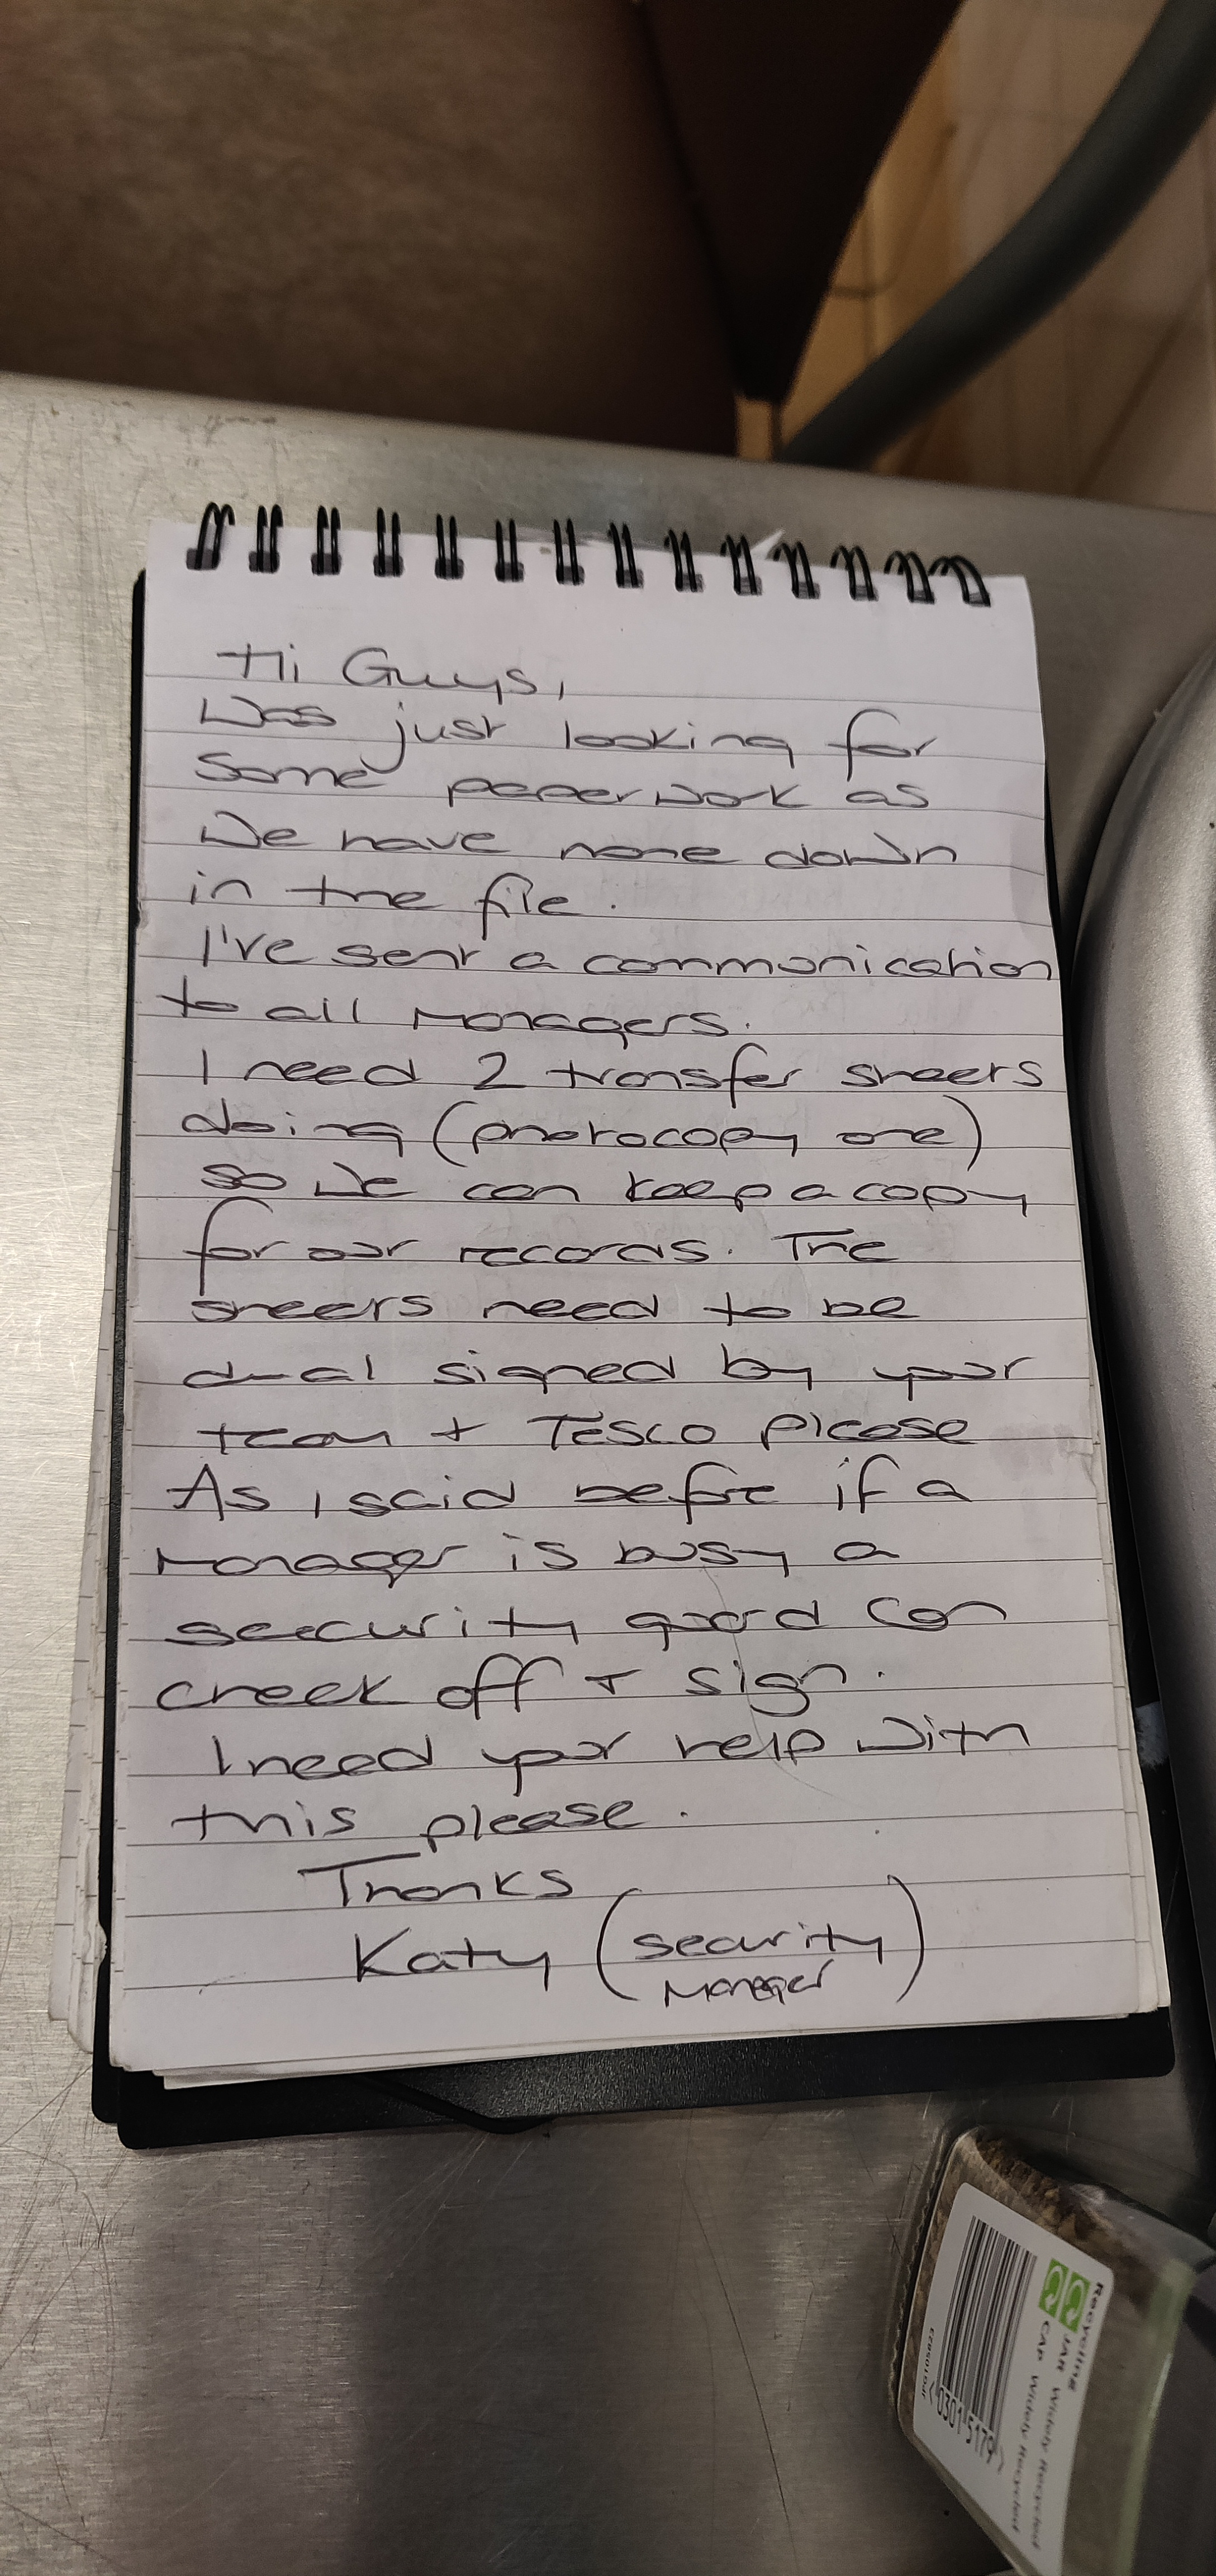 Hi Guys,
Was just looking for
some paperwork as
We have none down
in the file.
I've sent a communication
to all Managers.
I need 2 transfer sheets
doing (photocopy one)
so We can keep a copy
for our records. The
sheets need to be
dual signed by your
team + TESCO please
As I said before if a
Manager is busy a
seccurity guard can
check off + sign.
I need your help with
this please.
Thanks
Katy (security
Manager)
Recycling
JAR Widely Recycled
CAP Widely Recycled